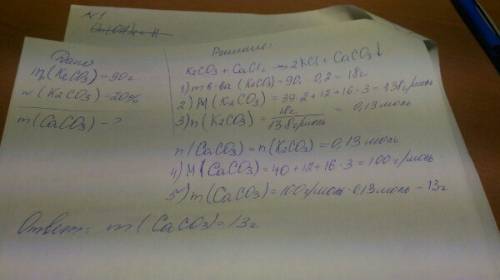 №1
Дано:
m(K2CO3)=90г
w(K2CO3)=20%
m(CaCO3)-?
Решение:
K2CO3 + CaCl2 → 2KCl + CaCO3↓
1) m в-ва (K2CO3)=90·0,2=18г
2) M(K2CO3)=39·2+12+16·3=138г/моль
3) n(K2CO3)=18г/138г/моль=0,13моль
n(CaCO3)=n(K2CO3)=0,13моль
4) M(CaCO3)=40+12+16·3=100г/моль
5) m(CaCO3)=100г/моль·0,13моль=13г
Ответ: m(CaCO3)=13г